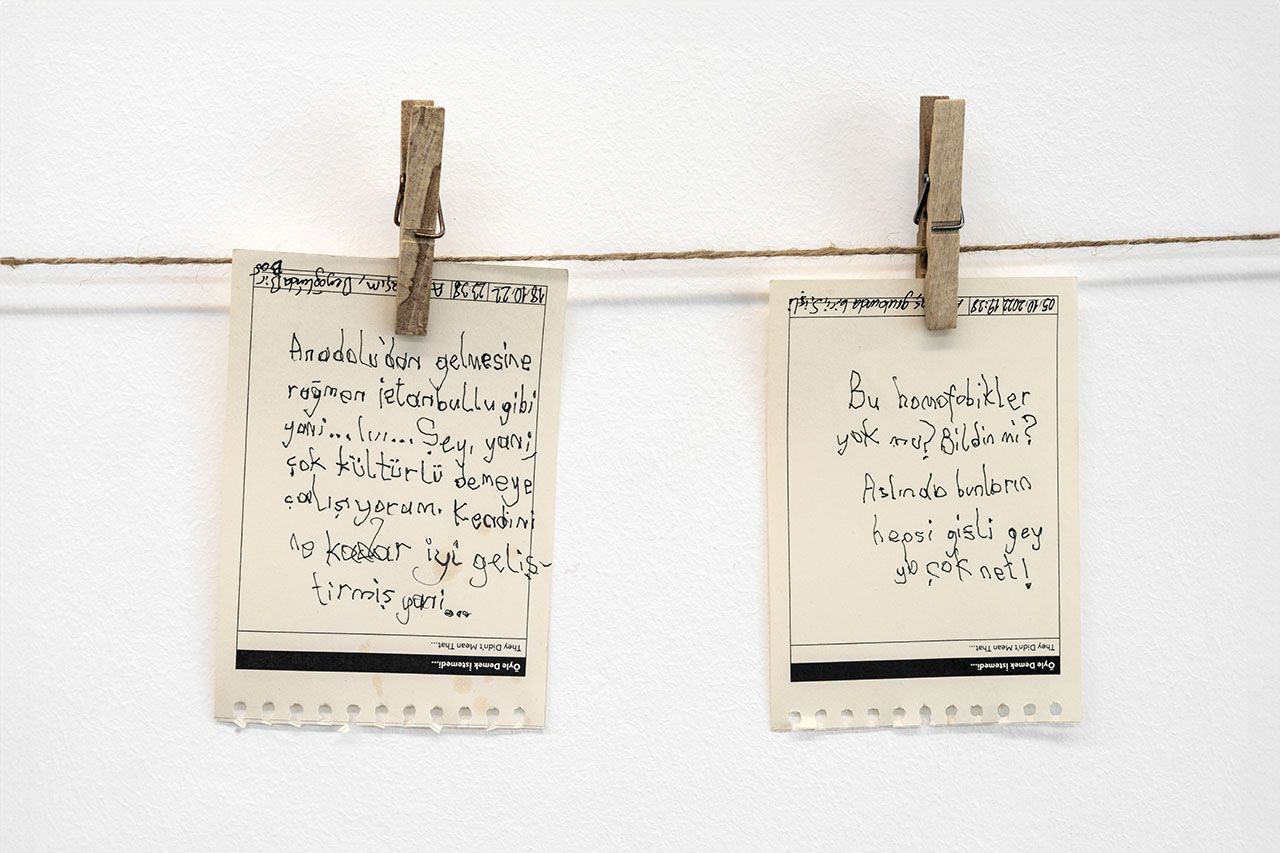 18.10.22 23:28 Beyoğlunda Bir
Bar
Anadolu'dan gelmesine
rağmen istanbullu gibi
yani... Iıı... Şey, yani,
çok kültürlü demeye
çalışıyorum. Kendini
ne kadar iyi geliş-
tirmiş yani...
They Didn't Mean That...
Öyle Demek İstemedi...
05.10.2022 19:28 grubunda biri Şişli
Bu homofobikler
yok mu? Bildin mi?
Aslında bunların
hepsi gizli gey
ya çok net!
They Didn't Mean That...
Öyle Demek İstemedi...